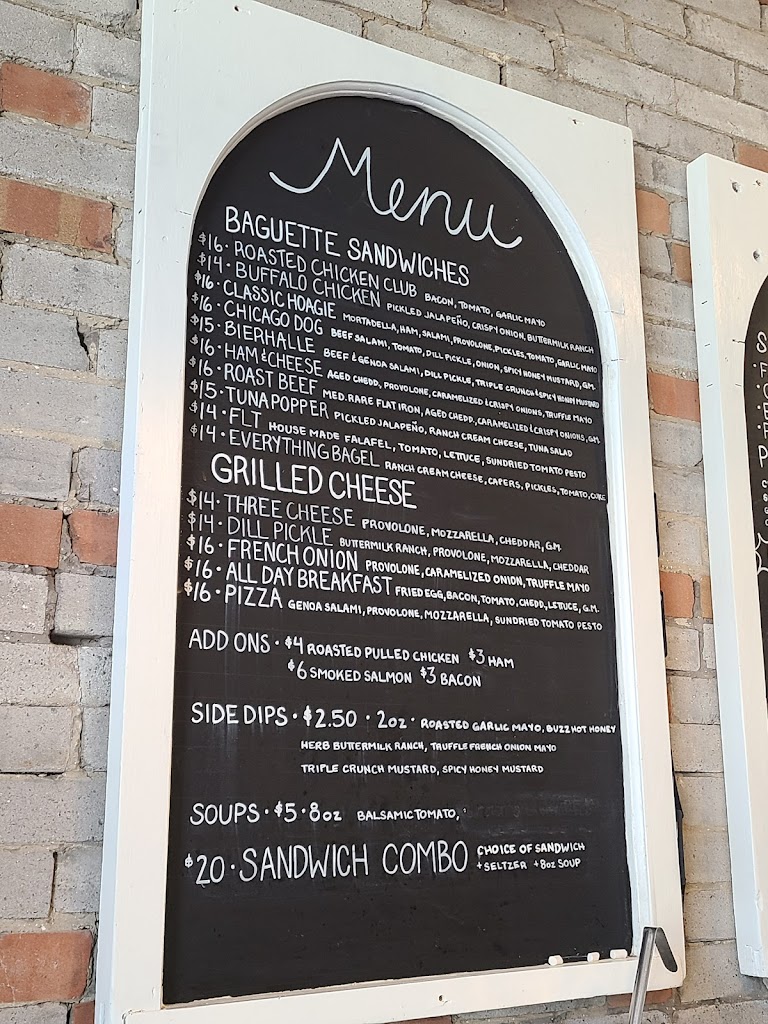 Menu
BAGUETTE SANDWICHES
$16 · ROASTED CHICKEN CLUB BACON, TOMATO, GARLIC MAYO
$14 · BUFFALO CHICKEN PICKLED JALAPEÑO, CRISPY ONION, BUTTERMILK RANCH
$16 · CLASSIC HOAGIE MORTADELLA, HAM, SALAMI, PROVOLONE, PICKLES, TOMATO, GARLIC MAYO
$16 · CHICAGO DOG BEEF SALAMI, TOMATO, DILL PICKLE, ONION, SPICY HONEY MUSTARD, G.M.
$15 · BIERHALLE BEEF & GENOA SALAMI, DILL PICKLE, TRIPLE CRUNCH & SPICY HONEY MUSTARD
$16 · HAM & CHEESE AGED CHEDD, PROVOLONE, CARAMELIZED & CRISPY ONIONS, TRUFFLE MAYO
$16 · ROAST BEEF MED. RARE FLAT IRON, AGED CHEDD, CARAMELIZED & CRISPY ONIONS, G.M.
$15 · TUNA POPPER PICKLED JALAPEÑO, RANCH CREAM CHEESE, TUNA SALAD
$14 · FLT HOUSE MADE FALAFEL, TOMATO, LETTUCE, SUNDRIED TOMATO PESTO
$14 · EVERYTHING BAGEL RANCH CREAM CHEESE, CAPERS, PICKLES, TOMATO, CUKE
GRILLED CHEESE
$14 · THREE CHEESE PROVOLONE, MOZZARELLA, CHEDDAR, G.M.
$14 · DILL PICKLE BUTTERMILK RANCH, PROVOLONE, MOZZARELLA, CHEDDAR
$16 · FRENCH ONION PROVOLONE, CARAMELIZED ONION, TRUFFLE MAYO
$16 · ALL DAY BREAKFAST FRIED EGG, BACON, TOMATO, CHEDD, LETTUCE, G.M.
$16 · PIZZA GENOA SALAMI, PROVOLONE, MOZZARELLA, SUNDRIED TOMATO PESTO
ADD ONS · $4 ROASTED PULLED CHICKEN $3 HAM
$6 SMOKED SALMON $3 BACON
SIDE DIPS · $2.50 · 2oz · ROASTED GARLIC MAYO, BUZZ HOT HONEY
HERB BUTTERMILK RANCH, TRUFFLE FRENCH ONION MAYO
TRIPLE CRUNCH MUSTARD, SPICY HONEY MUSTARD
SOUPS · $5 · 8oz BALSAMIC TOMATO,
$20 · SANDWICH COMBO CHOICE OF SANDWICH
+ SELTZER + 8oz SOUP